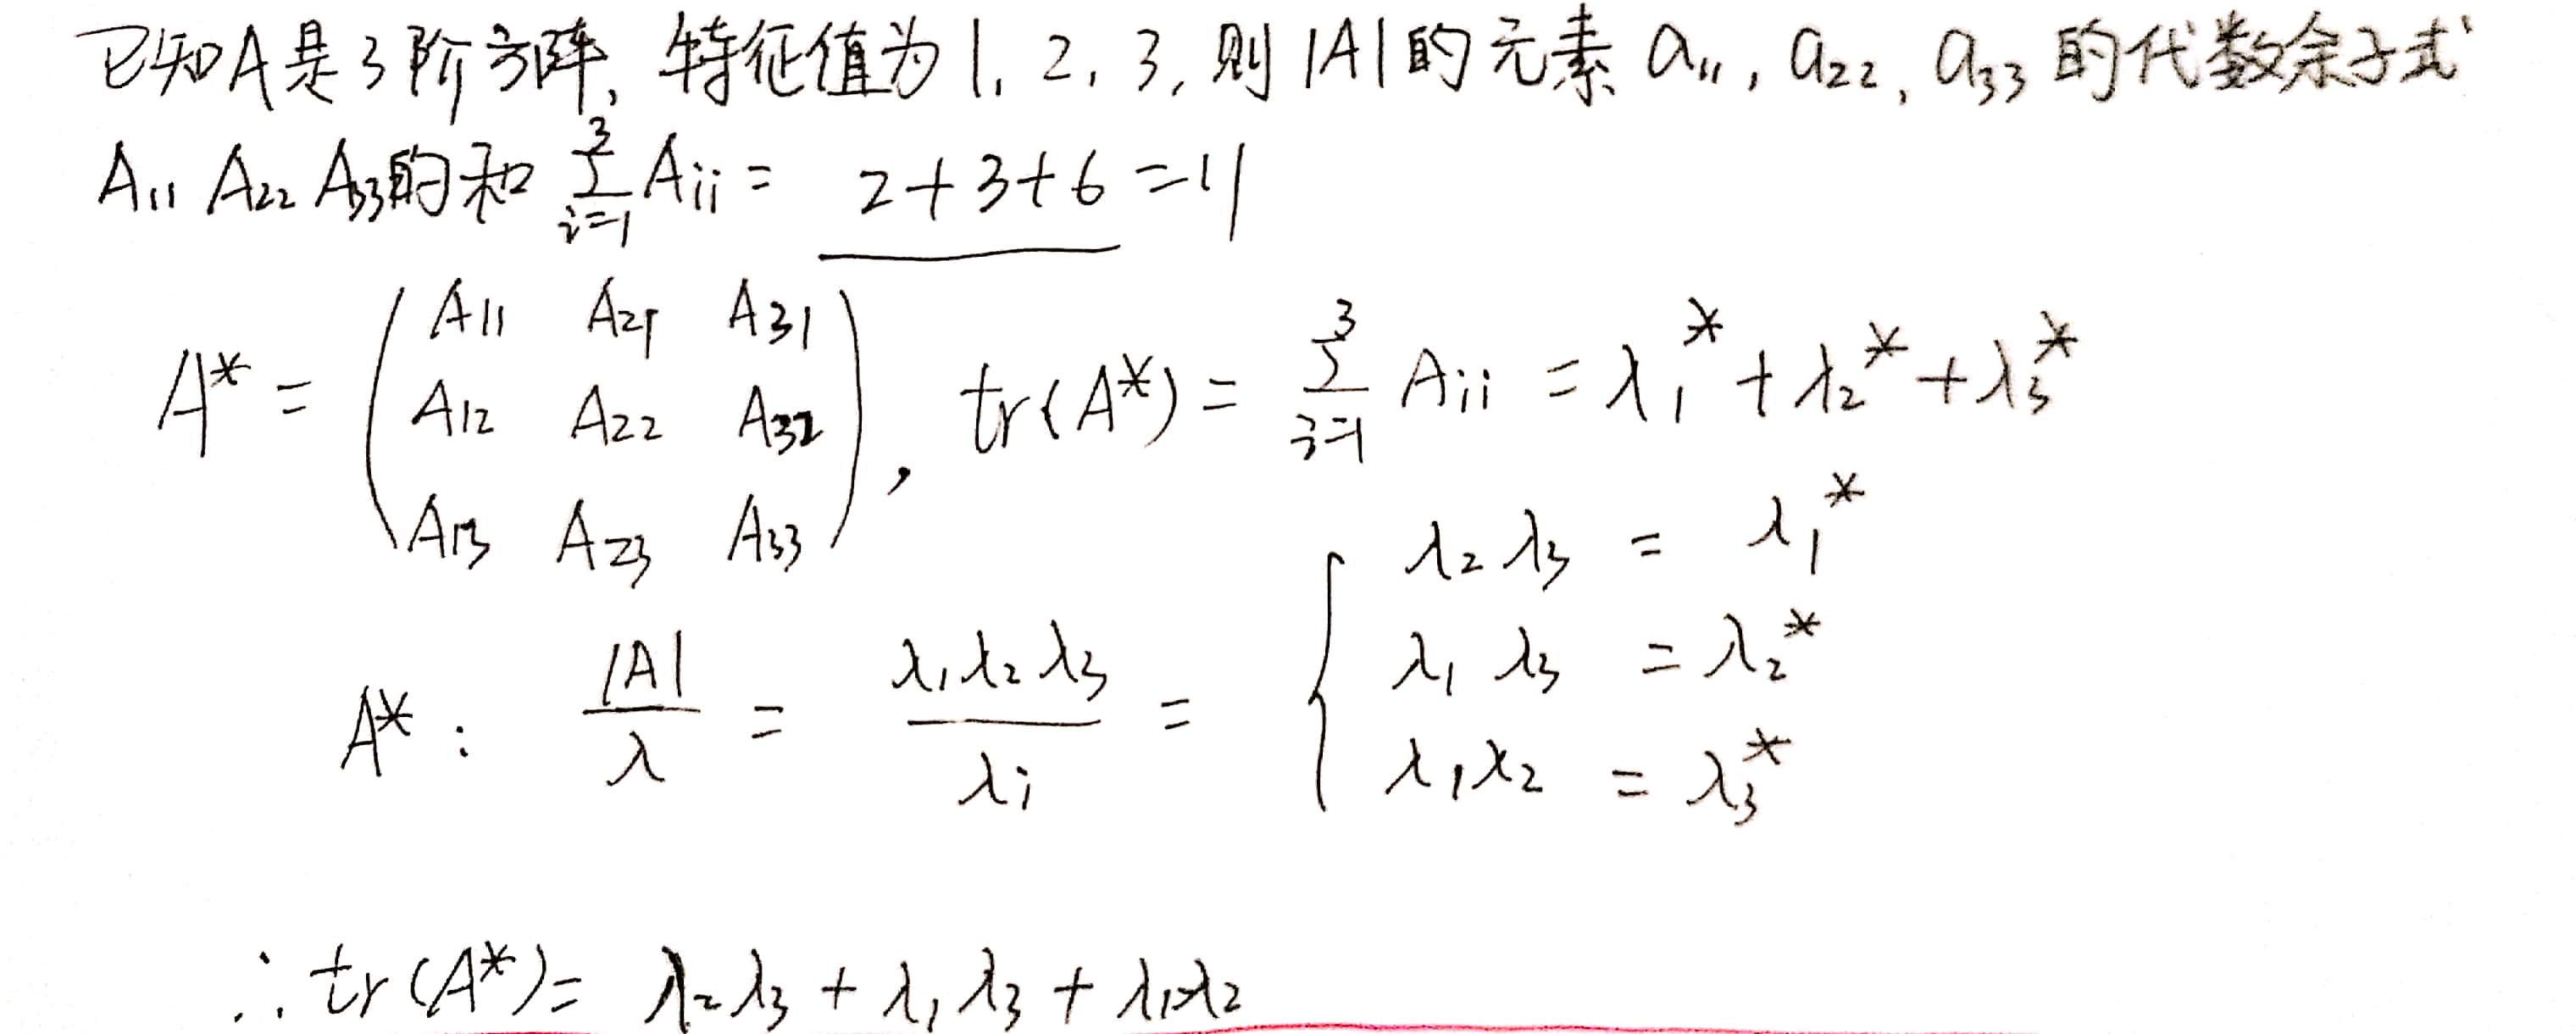 已知A是3阶方阵,特征值为1,2,3,则|A|的元素a₁₁,a₂₂,a₃₃的代数余子式
A₁₁ A₂₂ A₃₃的和 ∑_{i=1}^{3} Aᵢᵢ = 2+3+6 =11
A* = ( A₁₁ A₂₁ A₃₁
A₁₂ A₂₂ A₃₂
A₁₃ A₂₃ A₃₃ ), tr(A*) = ∑_{i=1}^{3} Aᵢᵢ = λ₁* + λ₂* + λ₃*
A* : |A|/λ = λ₁λ₂λ₃/λᵢ = { λ₂λ₃ = λ₁*
λ₁λ₃ = λ₂*
λ₁λ₂ = λ₃*
∴ tr(A*) = λ₂λ₃ + λ₁λ₃ + λ₁λ₂